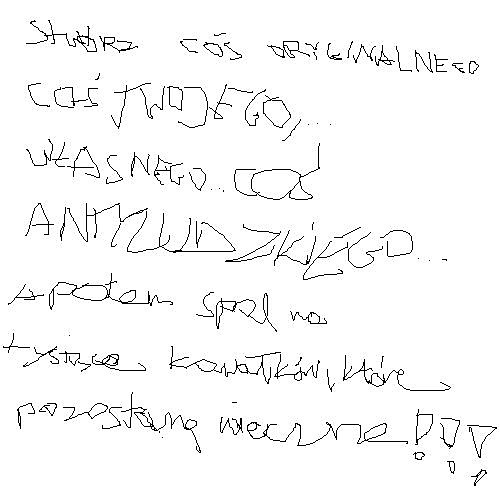 STWÓRZ COŚ ORYGINALNEGO
COŚ TWOJEGO,...
WŁASNEGO... COŚ
ANTYLUDZKIEGO...
a potem spal na
tysiące kawałków, które
pozostaną wieczne!!!